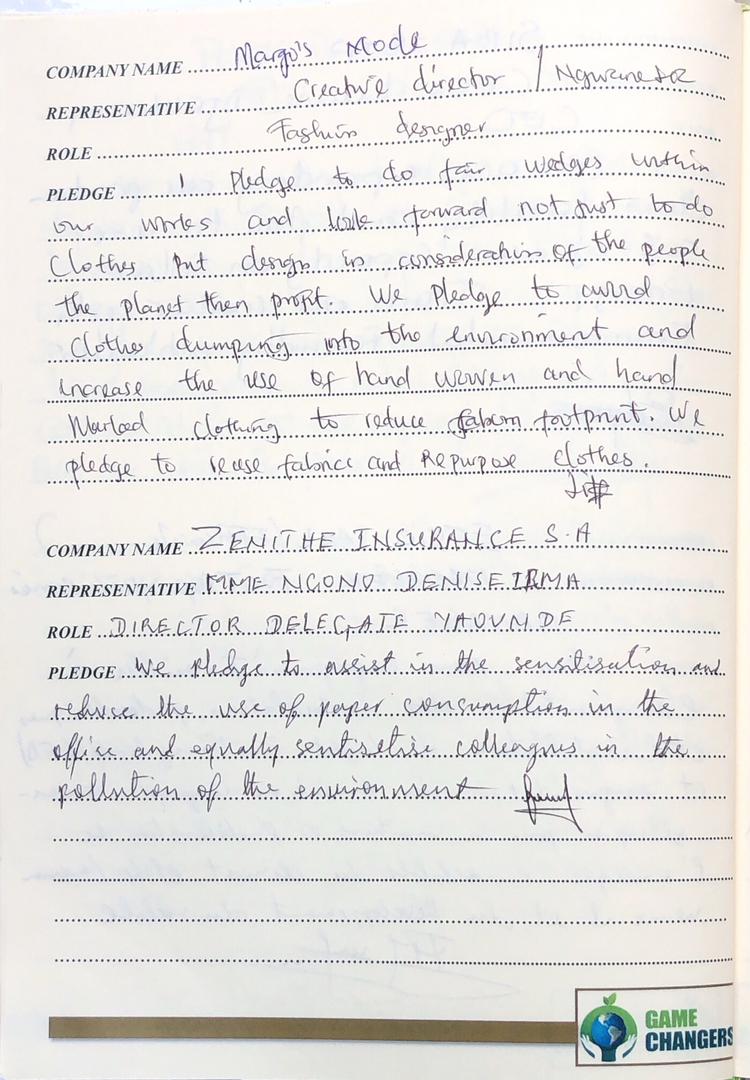 COMPANY NAME Margo's Mode
REPRESENTATIVE Creature director /
ROLE Fashion designer
PLEDGE I Pledge to do fair wedges within
our works and look forward not just to do
Clothes but design in consideration of the people
the planet then profit. We Pledge to
Clothes dumping into the environment and
increase the use of hand woven and hand
clothing to reduce footprint. We
pledge to reuse fabrics and Repurpose clothes.
COMPANY NAME ZENITHE INSURANCE S.A
REPRESENTATIVE MME NGONO DENISE IRMA
ROLE DIRECTOR DELEGATE YAOUNDE
PLEDGE We pledge to assist in the sensitisation and
reduce the use of paper consumption in the
office and equally sentisetise colleagues in the
pollution of the environment
GAME
CHANGERS